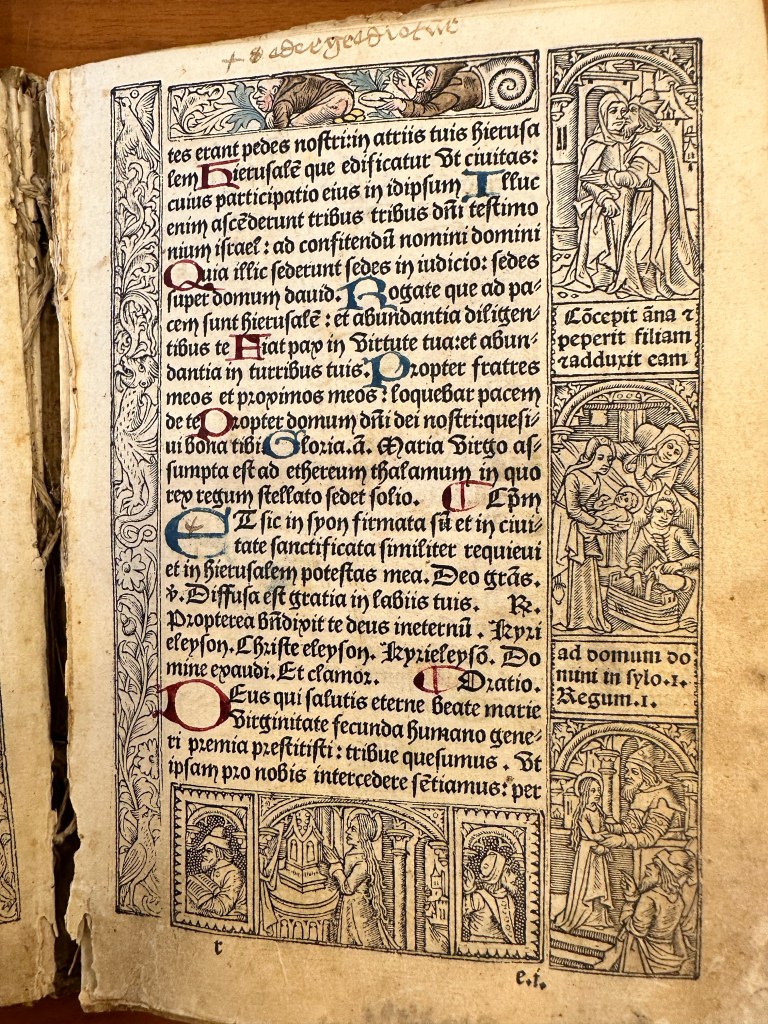 tes erant pedes nostri: in atriis tuis hierusa
lem Hierusalē que edificatur vt ciuitas:
cuius participatio eius in idipsum Illuc
enim ascēderunt tribus tribus dn̄i testimo
nium israel: ad confitendū nomini domini
Quia illic sederunt sedes in iudicio: sedes
super domum dauid. Rogate que ad pa-
cem sunt hierusalē: et abundantia diligen-
tibus te Fiat pax in virtute tua: et abun-
dantia in turribus tuis. Propter fratres
meos et proximos meos: loquebar pacem
de te Propter domum dn̄i dei nostri: quesi-
ui bona tibi Gloria. ā. Maria virgo as-
sumpta est ad ethereum thalamum in quo
rex regum stellato sedet solio. Cp̄m
ET sic in syon firmata sū et in ciui-
tate sanctificata similiter requieui
et in hierusalem potestas mea. Deo grās.
℣. Diffusa est gratia in labiis tuis. ℟.
Propterea bn̄dixit te deus ineternū. Kyri
eleyson. Christe eleyson. Kyrieleysō. Do
mine exaudi. Et clamor. Oratio.
DEus qui salutis eterne beate marie
virginitate fecunda humano gene-
ri premia prestitisti: tribue quesumus. Vt
ipsam pro nobis intercedere sētiamus: per
Cōcepit āna ⁊
peperit filiam
⁊ adduxit eam
ad domum do
mini in sylo .1.
Regum .1.
r
e.i.